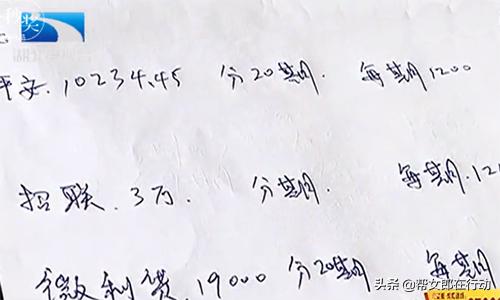 奖
平安. 10234.45 分20期. 每期1200
招联. 3万. 分期. 每期.12
微利贷. 19000 分20期 每期
头条 @帮女郎在行动